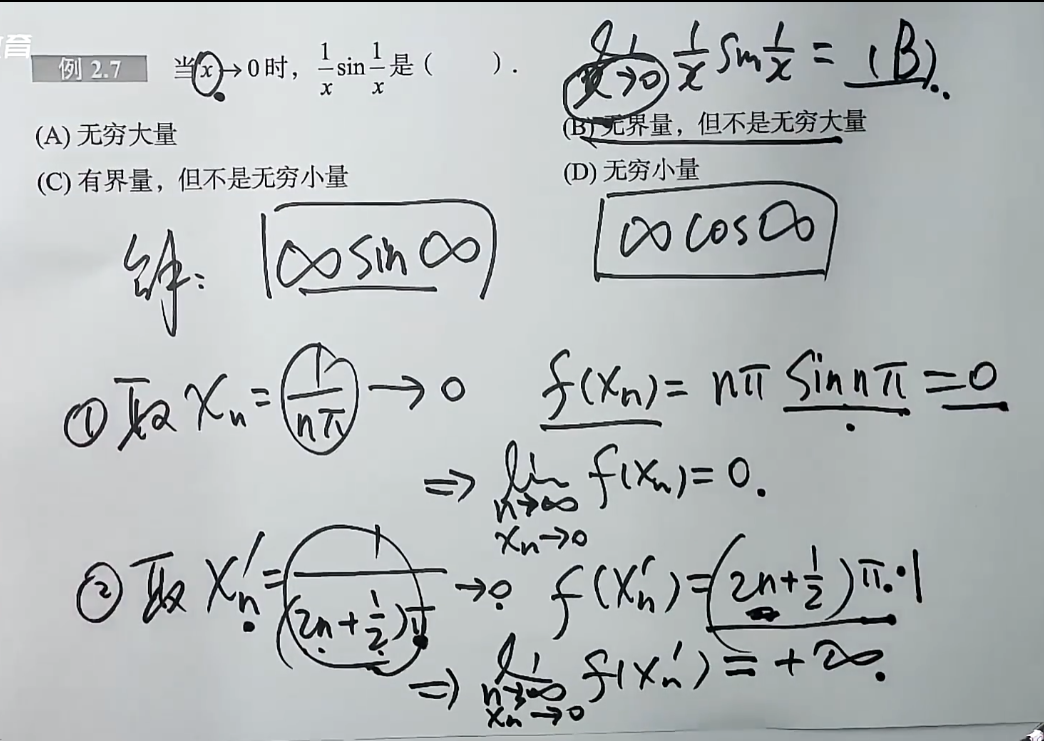 育
例 2.7 当 x→0 时，$\frac{1}{x}\sin\frac{1}{x}$ 是（ ）.
$\lim_{x \to 0} \frac{1}{x} \sin \frac{1}{x} = $ (B).
(A) 无穷大量
(B) 无界量，但不是无穷大量
(C) 有界量，但不是无穷小量
(D) 无穷小量
解: ∞ sin ∞
∞ cos ∞
① 取 $x_n = \frac{1}{n\pi} \to 0$ $f(x_n) = n\pi \sin n\pi = 0$
$\Rightarrow \lim_{n \to \infty} f(x_n) = 0.$
$x_n \to 0$
② 取 $x_n' = \frac{1}{(2n+\frac{1}{2})\pi} \to 0$ $f(x_n') = (2n+\frac{1}{2})\pi \cdot 1$
$\Rightarrow \lim_{n \to \infty} f(x_n') = +\infty.$
$x_n \to 0$